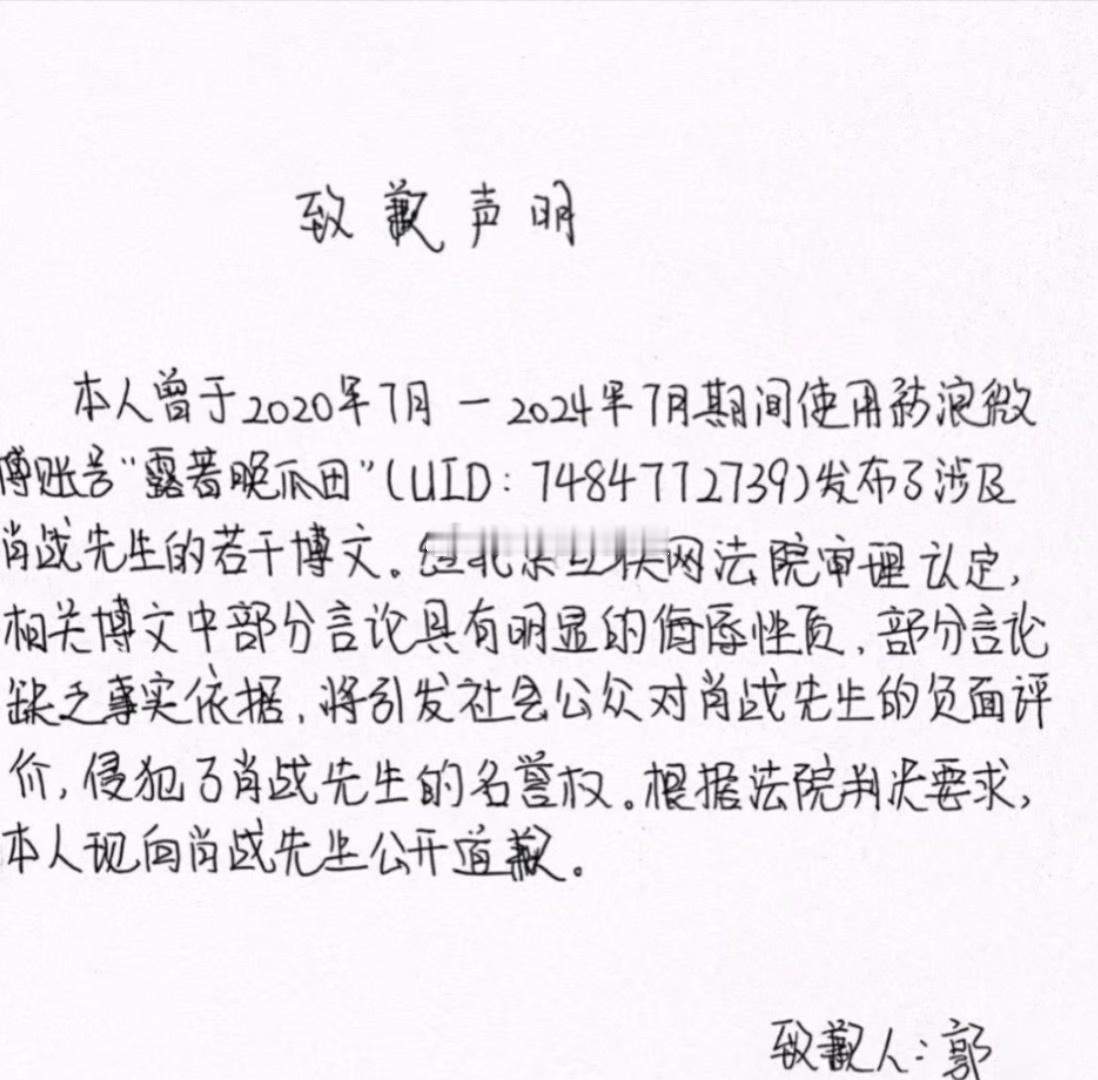 致歉声明
本人曾于2020年7月-2024年7月期间使用新浪微
博账号“露著晚瓜田”(UID:7484772739)发布了涉及
肖战先生的若干博文。经北京互联网法院审理认定,
相关博文中部分言论具有明显的侮辱性质,部分言论
缺乏事实依据,将引发社会公众对肖战先生的负面评
价,侵犯了肖战先生的名誉权。根据法院判决要求,
本人现向肖战先生公开道歉。
致歉人:郭